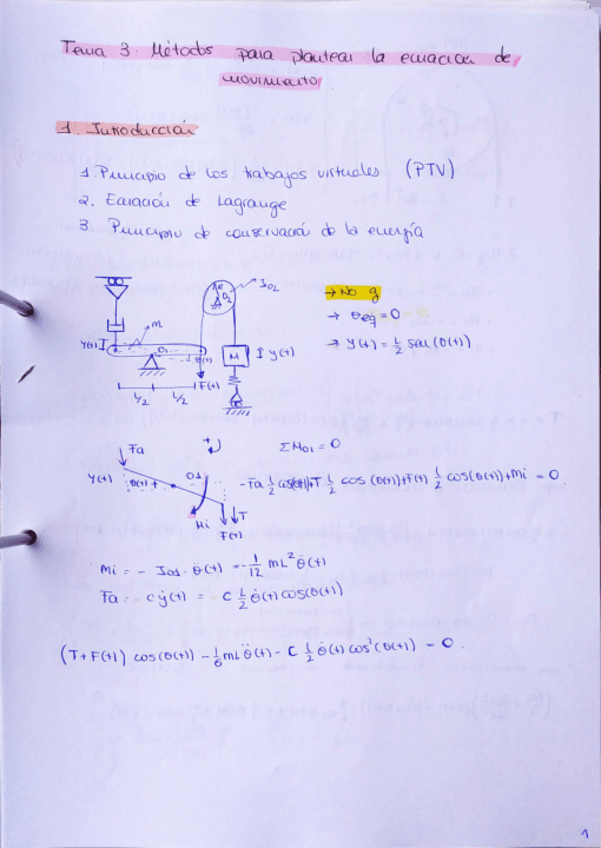 Tema 3. Métodos para plantear la ecuación de
movimiento
1. Introducción
1. Principio de los trabajos virtuales (PTV)
2. Ecuación de Lagrange
3. Principio de conservación de la energía
→ No g
→ θeq = 0
→ y(t) = L/2 sen(θ(t))
R
O2
JO2
m
y(t)
O1
θ(t)
M
y(t)
F(t)
L/2
L/2
Fa
+
ΣMO1 = 0
y(t)
θ(t)
O1
Mi
T
F(t)
-Fa L/2 cos(θ(t)) + T L/2 cos(θ(t)) + F(t) L/2 cos(θ(t)) + Mi = 0
Mi = - JO1 · θ̈(t) = - 1/12 mL² θ̈(t)
Fa = c ẏ(t) = c L/2 θ̇(t) cos(θ(t))
(T + F(t)) cos(θ(t)) - 1/6 mL θ̈(t) - c L/2 θ̇(t) cos²(θ(t)) = 0.
1